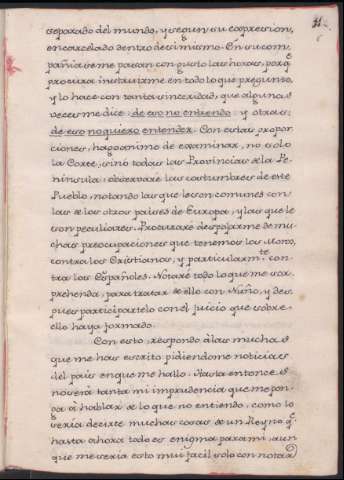 31
separado del mundo, y segun su expresion,
encarcelado dentro de si mismo. En su com-
pañia se me pasan con gusto las horas, porq.e
procura instruirme en todo lo que pregunto,
y lo hace con tanta sinceridad, que algunas
veces me dice: de eso no entiendo y otras:
de eso no quiero entender. Con estas propor-
ciones, hago animo de examinar, no solo
la Corte, sinó todas las Provincias de la Pe-
ninsula: observaré las costumbres de este
Pueblo, notando las que le son comunes con
las de los otros paises de Europa, y las que le
son peculiares. Procuraré despojarme de mu-
chas preocupaciones que tenemos los Moros,
contra los Cristianos, y particularm.te con-
tra los Españoles. Notaré todo lo que me sor-
prehenda, para tratar de ello con Nuño, y des-
pues participartelo con el juicio que sobre
ello haya formado.
Con esto, respondo à las muchas
que me has escrito pidiendome noticias
del pais en que me hallo. Hasta entonces
no será tanta mi imprudencia que me pon-
ga à hablar de lo que no entiendo, como lo
seria decirte muchas cosas de un Reyno q.e
hasta ahora todo es enigma para mi, aun
que me seria esto mui facil solo con notar